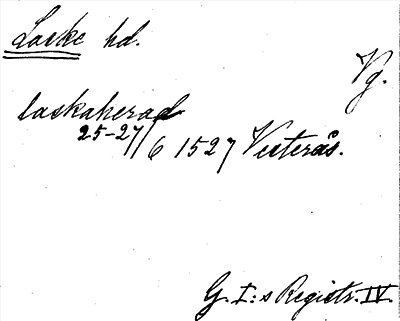 Laske hd.
Vg.
laskaherad
25-27/6 1527 Vesterås.
G. I:s Registr. IV.